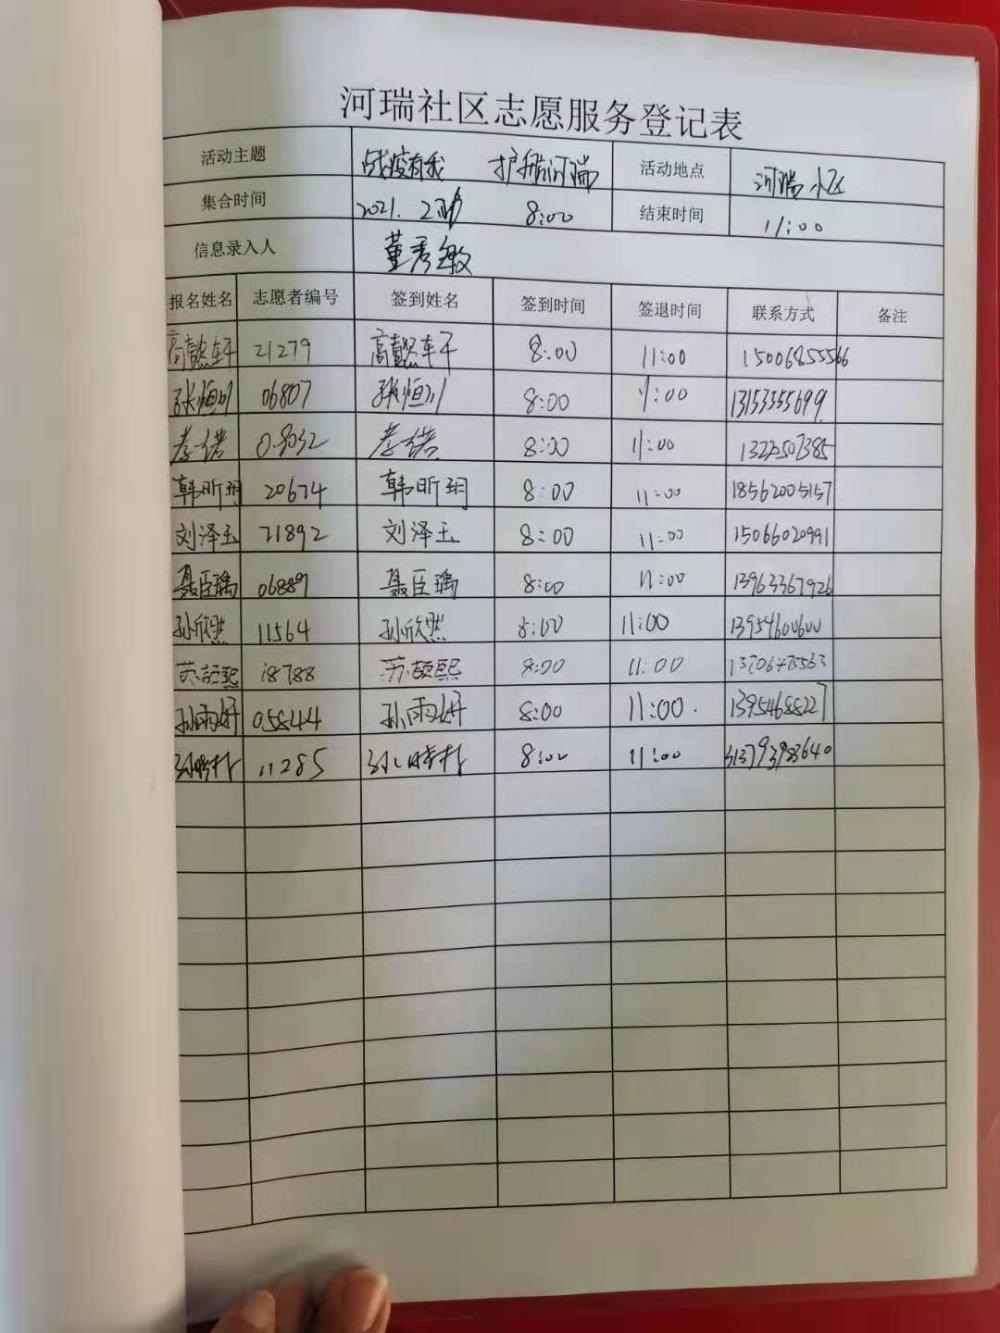 河瑞社区志愿服务登记表
活动主题 战疫有我 护航河瑞 活动地点 河瑞小区
集合时间 2021. 8:00 结束时间 11:00
信息录入人 董秀敏
报名姓名 志愿者编号 签到姓名 签到时间 签退时间 联系方式 备注
高懿轩 21279 高懿轩 8:00 11:00 15006855566
张恒川 06807 张恒川 8:00 11:00 13153555699
李诺 08032 李诺 8:00 11:00
韩昕玥 20674 韩昕玥 8:00 11:00 18562005157
刘泽玉 21892 刘泽玉 8:00 11:00 15066020991
聂臣瑀 06889 聂臣瑀 8:00 11:00 13963367926
孙欣然 11564 孙欣然 8:00 11:00 13954600600
苏颜熙 18788 苏颜熙 8:00 11:00
孙雨妍 05844 孙雨妍 8:00 11:00. 13954688227
11285 8:00 11:00